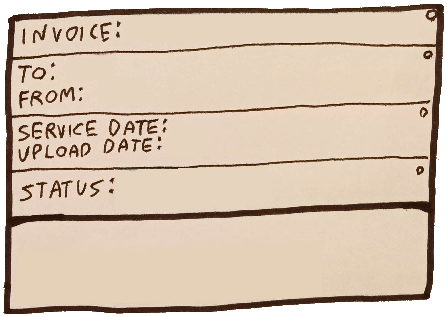 INVOICE:
TO:
FROM:
SERVICE DATE:
UPLOAD DATE:
STATUS: